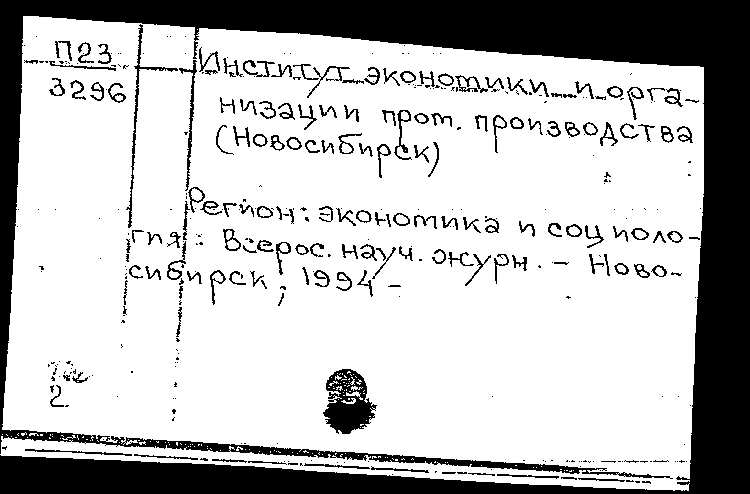 П23
3296
Институт экономики и орга-
низации пром. производства
(Новосибирск)
Регион: экономика и социоло-
гия: Всерос. науч. журн. – Ново-
сибирск, 1994 –
2